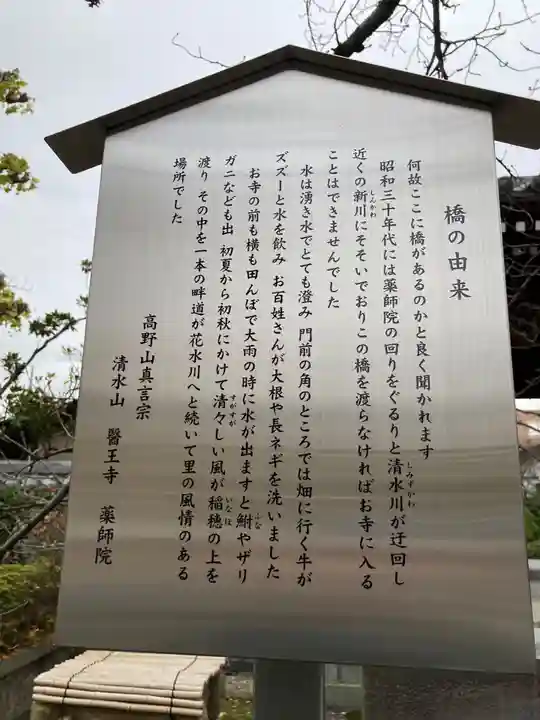 橋の由来
何故ここに橋があるのかと良く聞かれます
昭和三十年代には薬師院の回りをぐるりと清水川が迂回し
しみずかわ
近くの新川にそそいでおりこの橋を渡らなければお寺に入る
しんかわ
ことはできませんでした
水は湧き水でとても澄み 門前の角のところでは畑に行く牛が
ズズーと水を飲み お百姓さんが大根や長ネギを洗いました
お寺の前も横も田んぼで大雨の時に水が出ますと鮒やザリ
ふな
ガニなども出 初夏から初秋にかけて清々しい風が稲穂の上を
すがすが
いなほ
渡り その中を一本の畔道が花水川へと続いて里の風情のある
場所でした
高野山真言宗
清水山 醫王寺 薬師院